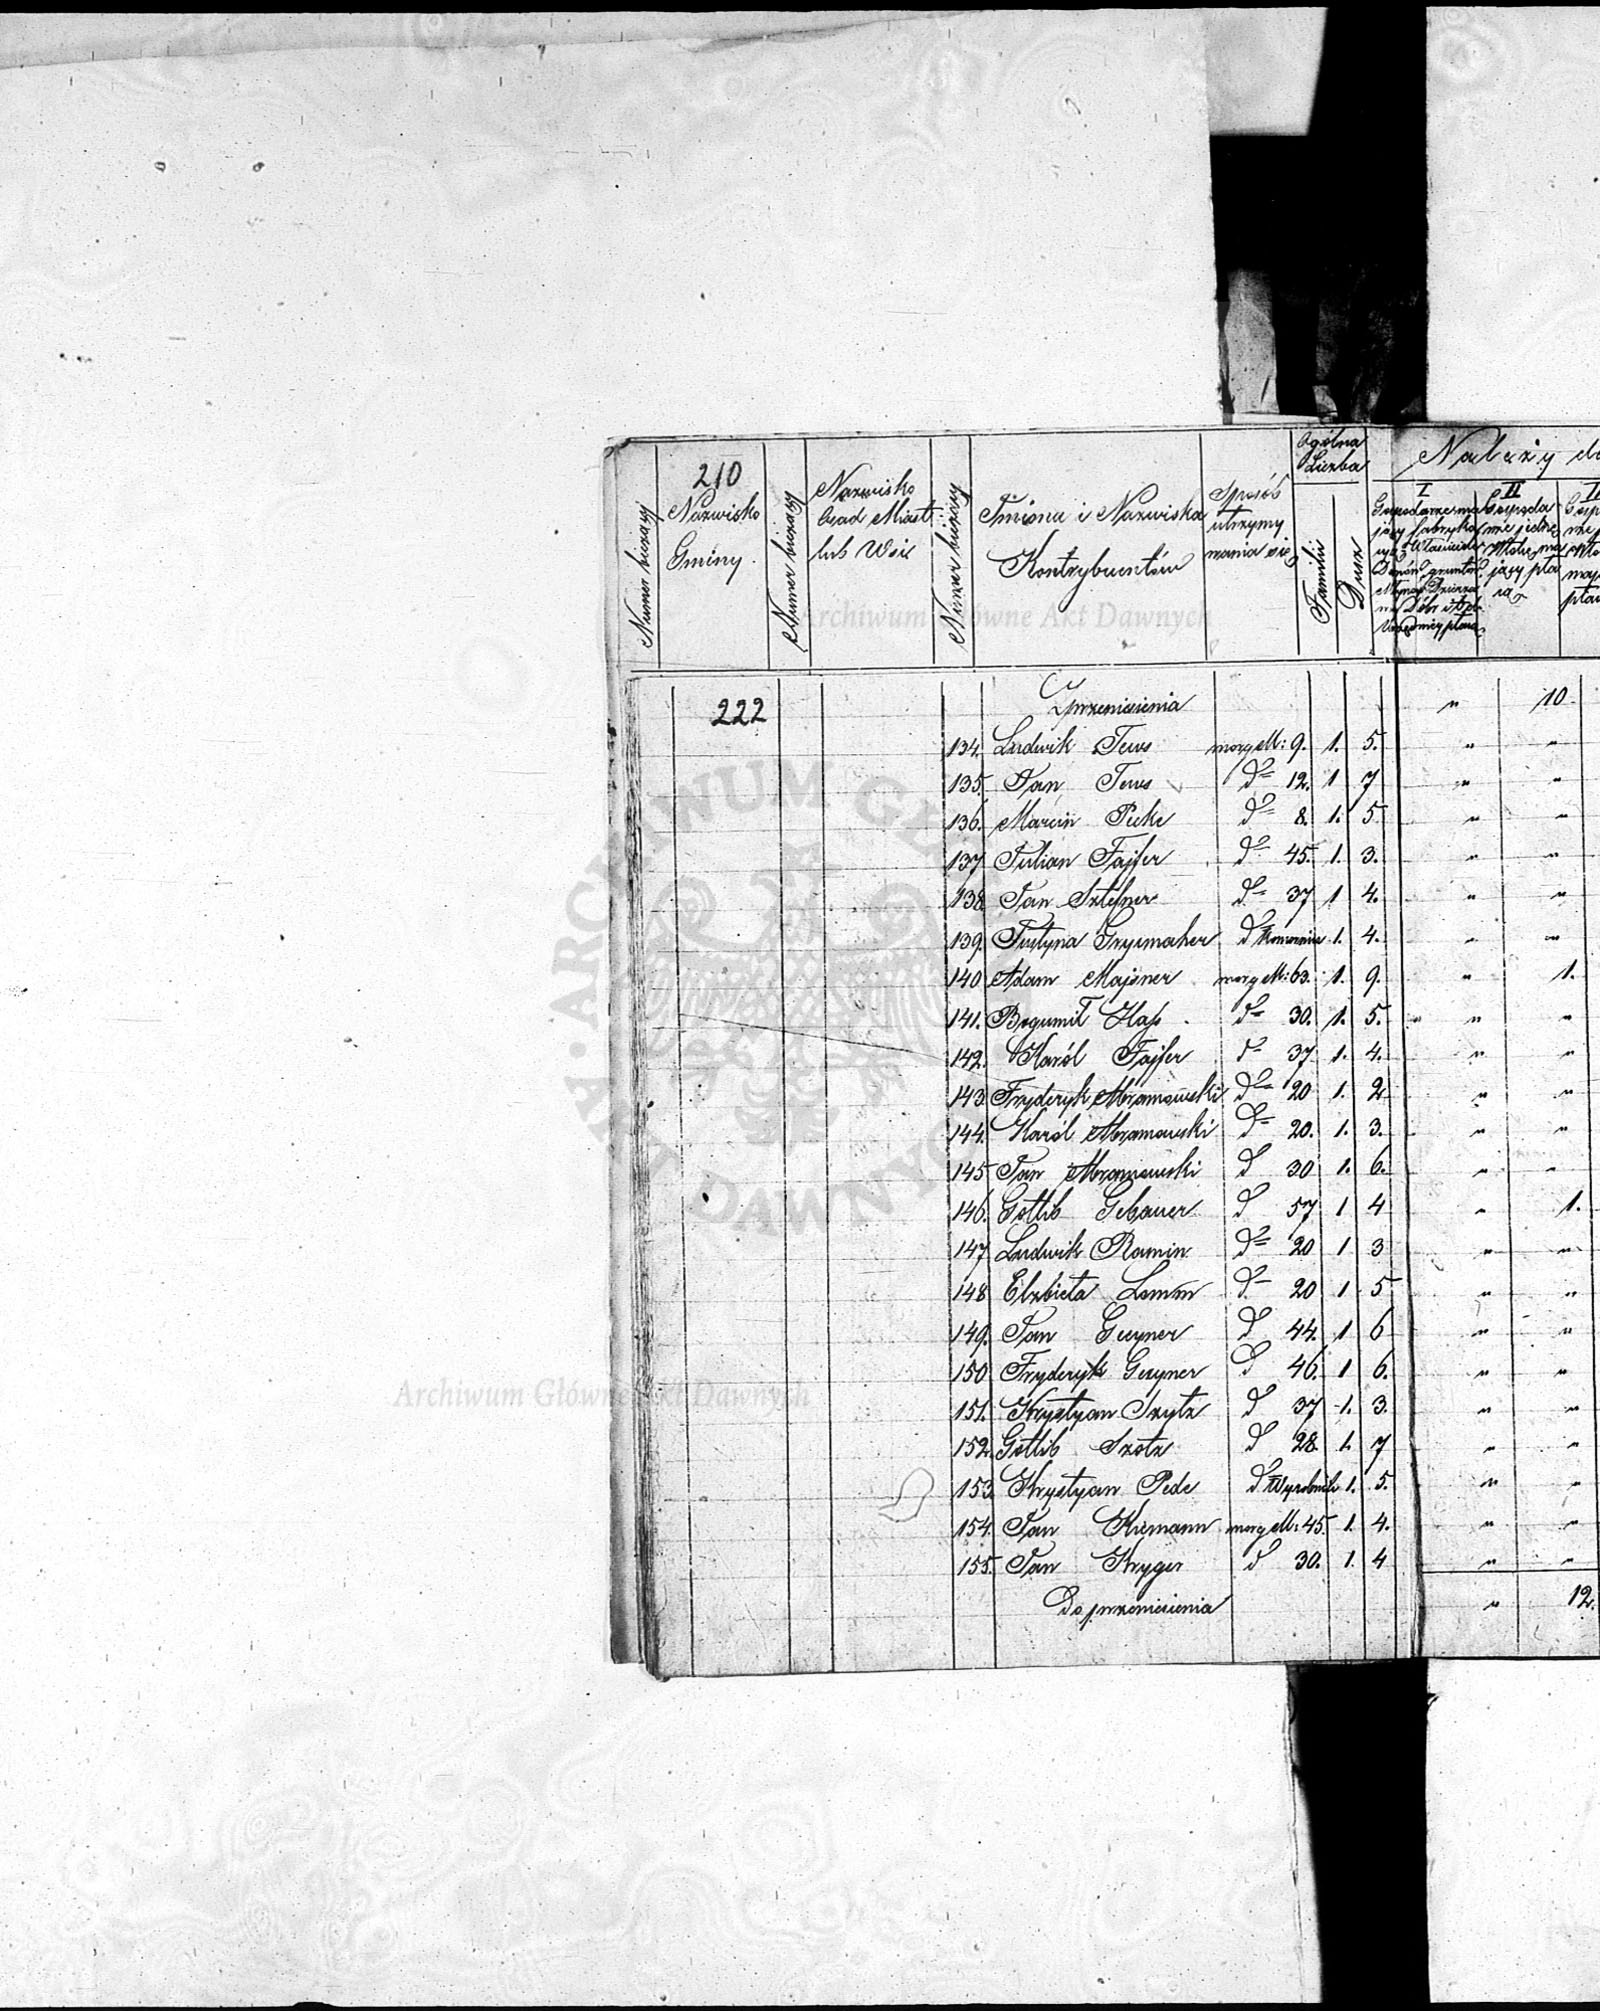 210
222
Numer bieżący
Nazwisko
Gminy.
Numer bieżący
Nazwisko
Osad Miast
lub Wsi
Numer bieżący
Imiona i Nazwiska
Kontrybuentów
Sposób
utrzymy
wania się
Ogólna
Liczba
Familii
Dusz
Należy do
I
II
jedne
Archiwum Główne Akt Dawnych
Z przeniesienia " 10.
134. Ludwik Tews morg M: 9. 1. 5. " "
135. Jan Tews d° 12. 1 7 " "
136. Marcin Pieke d° 8. 1. 5. " "
137 Julian Fajfer d° 45. 1. 3. " "
138. Jan Sztelner d° 37 1 4. " "
139. Justyna d° Komornica 1. 4. " "
140. Adam Majsner morg M: 63. 1. 9. " 1.
141. Bogumił Hass d° 30. 1. 5. " "
142. Karól Fajfer d° 37 1. 4. " "
143. Fryderyk Abramowski d° 20 1. 2 " "
144. Karól Abramowski d° 20. 1. 3. " "
145 Jan Abramowski d° 30 1. 6. " "
146. Gottlib Gebauer d° 57 1 4 " 1.
147 Ludwik Ramin d° 20 1 3 " "
148 Elżbieta Lamm d° 20 1 5 " "
149. Jan d° 44. 1 6 " "
150 Fryderyk d° 46. 1 6. " "
151. Krystyan Szytz d° 37 1. 3. " "
152. Gottlib Szotz d° 28 1. 7 " "
153. Krystyan Pede d° Wyrobnik 1. 5. " "
154. Jan morg M: 45. 1. 4. " "
155. Jan Kryger d° 30. 1. 4 " "
Do przeniesienia " 12.
ARCHIWUM GŁ
AKT DAWNYCH
Archiwum Główne Akt Dawnych